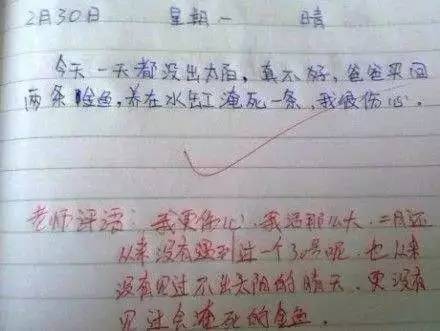 2月30日 星期一 晴
今天一天都没出太阳,真不好,爸爸买回
两条金鱼,养在水缸淹死一条,我很伤心。
老师评语:我更伤心,我活那么大,二月还
从来没有碰到过一个30号呢,也从来
没有见过不出太阳的晴天,更没有
见过会淹死的金鱼。